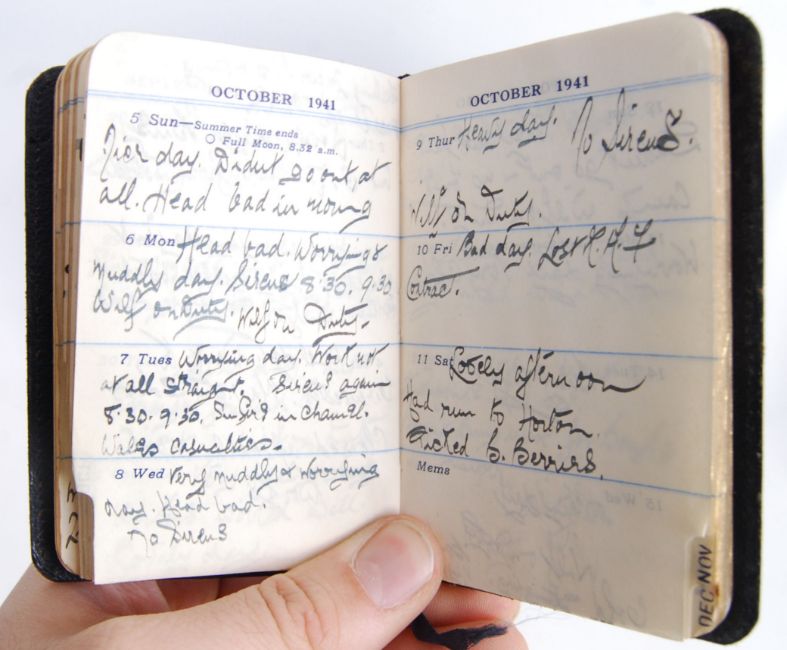 OCTOBER 1941
5 Sun—Summer Time ends
O Full Moon, 8.32 a.m.
Nice day. Didnt go out, at
all. Head bad in mong
6 Mon Head bad. Worrying &
muddly day. Sirens 8.30. 9.30
Wilf on Duty. Wilf on Duty.
7 Tues Worrying day. Work not
at all straight. Sirens again
8.30. 9.30. in Channel.
Wales casualties.
8 Wed Very muddly & worrying
day. Head bad.
No Sirens
OCTOBER 1941
9 Thur Heavy day. No Sirens.
Wilf on Duty.
10 Fri Bad day. Lost R.A.F
Contract.
11 Sat Lovely afternoon
Had run to Horton.
Picked B. Berries.
Mems
DEC NOV